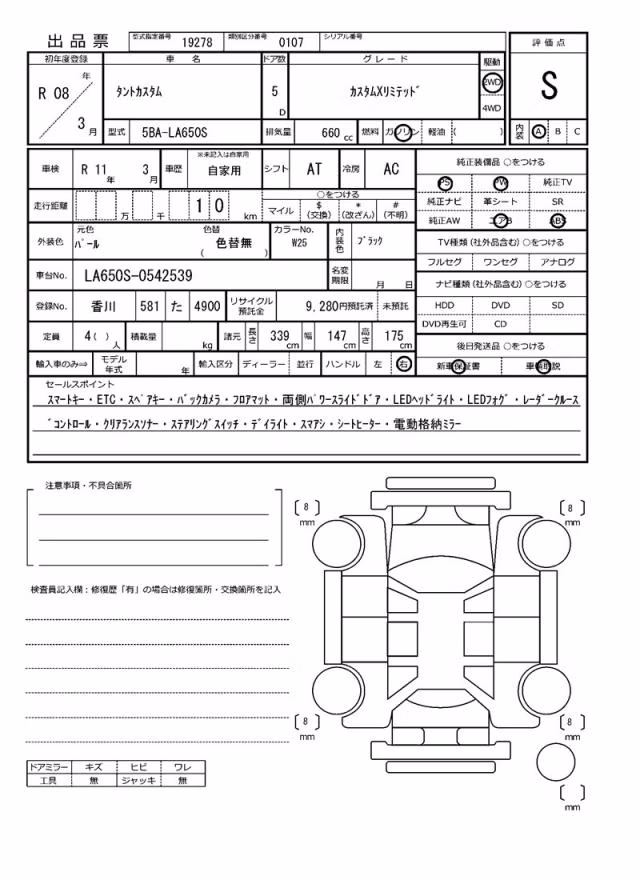 出品票 型式指定番号 19278 類別区分番号 0107 シリアル番号
評価点
初年度登録 車名 ドア数 グレード 駆動
R 08 年 3 月 タントカスタム 5 D カスタムXリミテッド 2WD 4WD S
型式 5BA-LA650S 排気量 660 cc 燃料 ガソリン 軽油 ( ) 内装 A B C
車検 R 11 年 3 月 車歴 ※未記入は自家用 自家用 シフト AT 冷房 AC
走行距離 万 千 1 0 km ○をつける
マイル $ (交換) * (改ざん) # (不明)
外装色 元色 パール 色替 色替無 ( ) カラーNo. W25 内装色 ブラック
車台No. LA650S-0542539 名変期限 月 日
登録No. 香川 581 た 4900 リサイクル預託金 9,280円預託済 未預託
定員 4( )人 積載量 kg 諸元 長さ 339 cm 幅 147 cm 高さ 175 cm
輸入車のみ⇒ モデル年式 年 輸入区分 ディーラー 並行 ハンドル 左 右
純正装備品 ○をつける
PS PW 純正TV
純正ナビ 革シート SR
純正AW エアB ABS
TV種類 (社外品含む) ○をつける
フルセグ ワンセグ アナログ
ナビ種類 (社外品含む) ○をつける
HDD DVD SD
DVD再生可 CD
後日発送品 ○をつける
新車保証書 車輌取説
セールスポイント
スマートキー・ETC・スペアキー・バックカメラ・フロアマット・両側パワースライドドア・LEDヘッドライト・LEDフォグ・レーダークルース
゙コントロール・クリアランスソナー・ステアリングスイッチ・デイライト・スマアシ・シートヒーター・電動格納ミラー
注意事項・不具合箇所
検査員記入欄：修復歴「有」の場合は修復箇所・交換箇所を記入
ドアミラー キズ ヒビ ワレ
工具 無 ジャッキ 無
〔 8 〕 mm
〔 8 〕 mm
〔 8 〕 mm
〔 8 〕 mm
〔 〕 mm